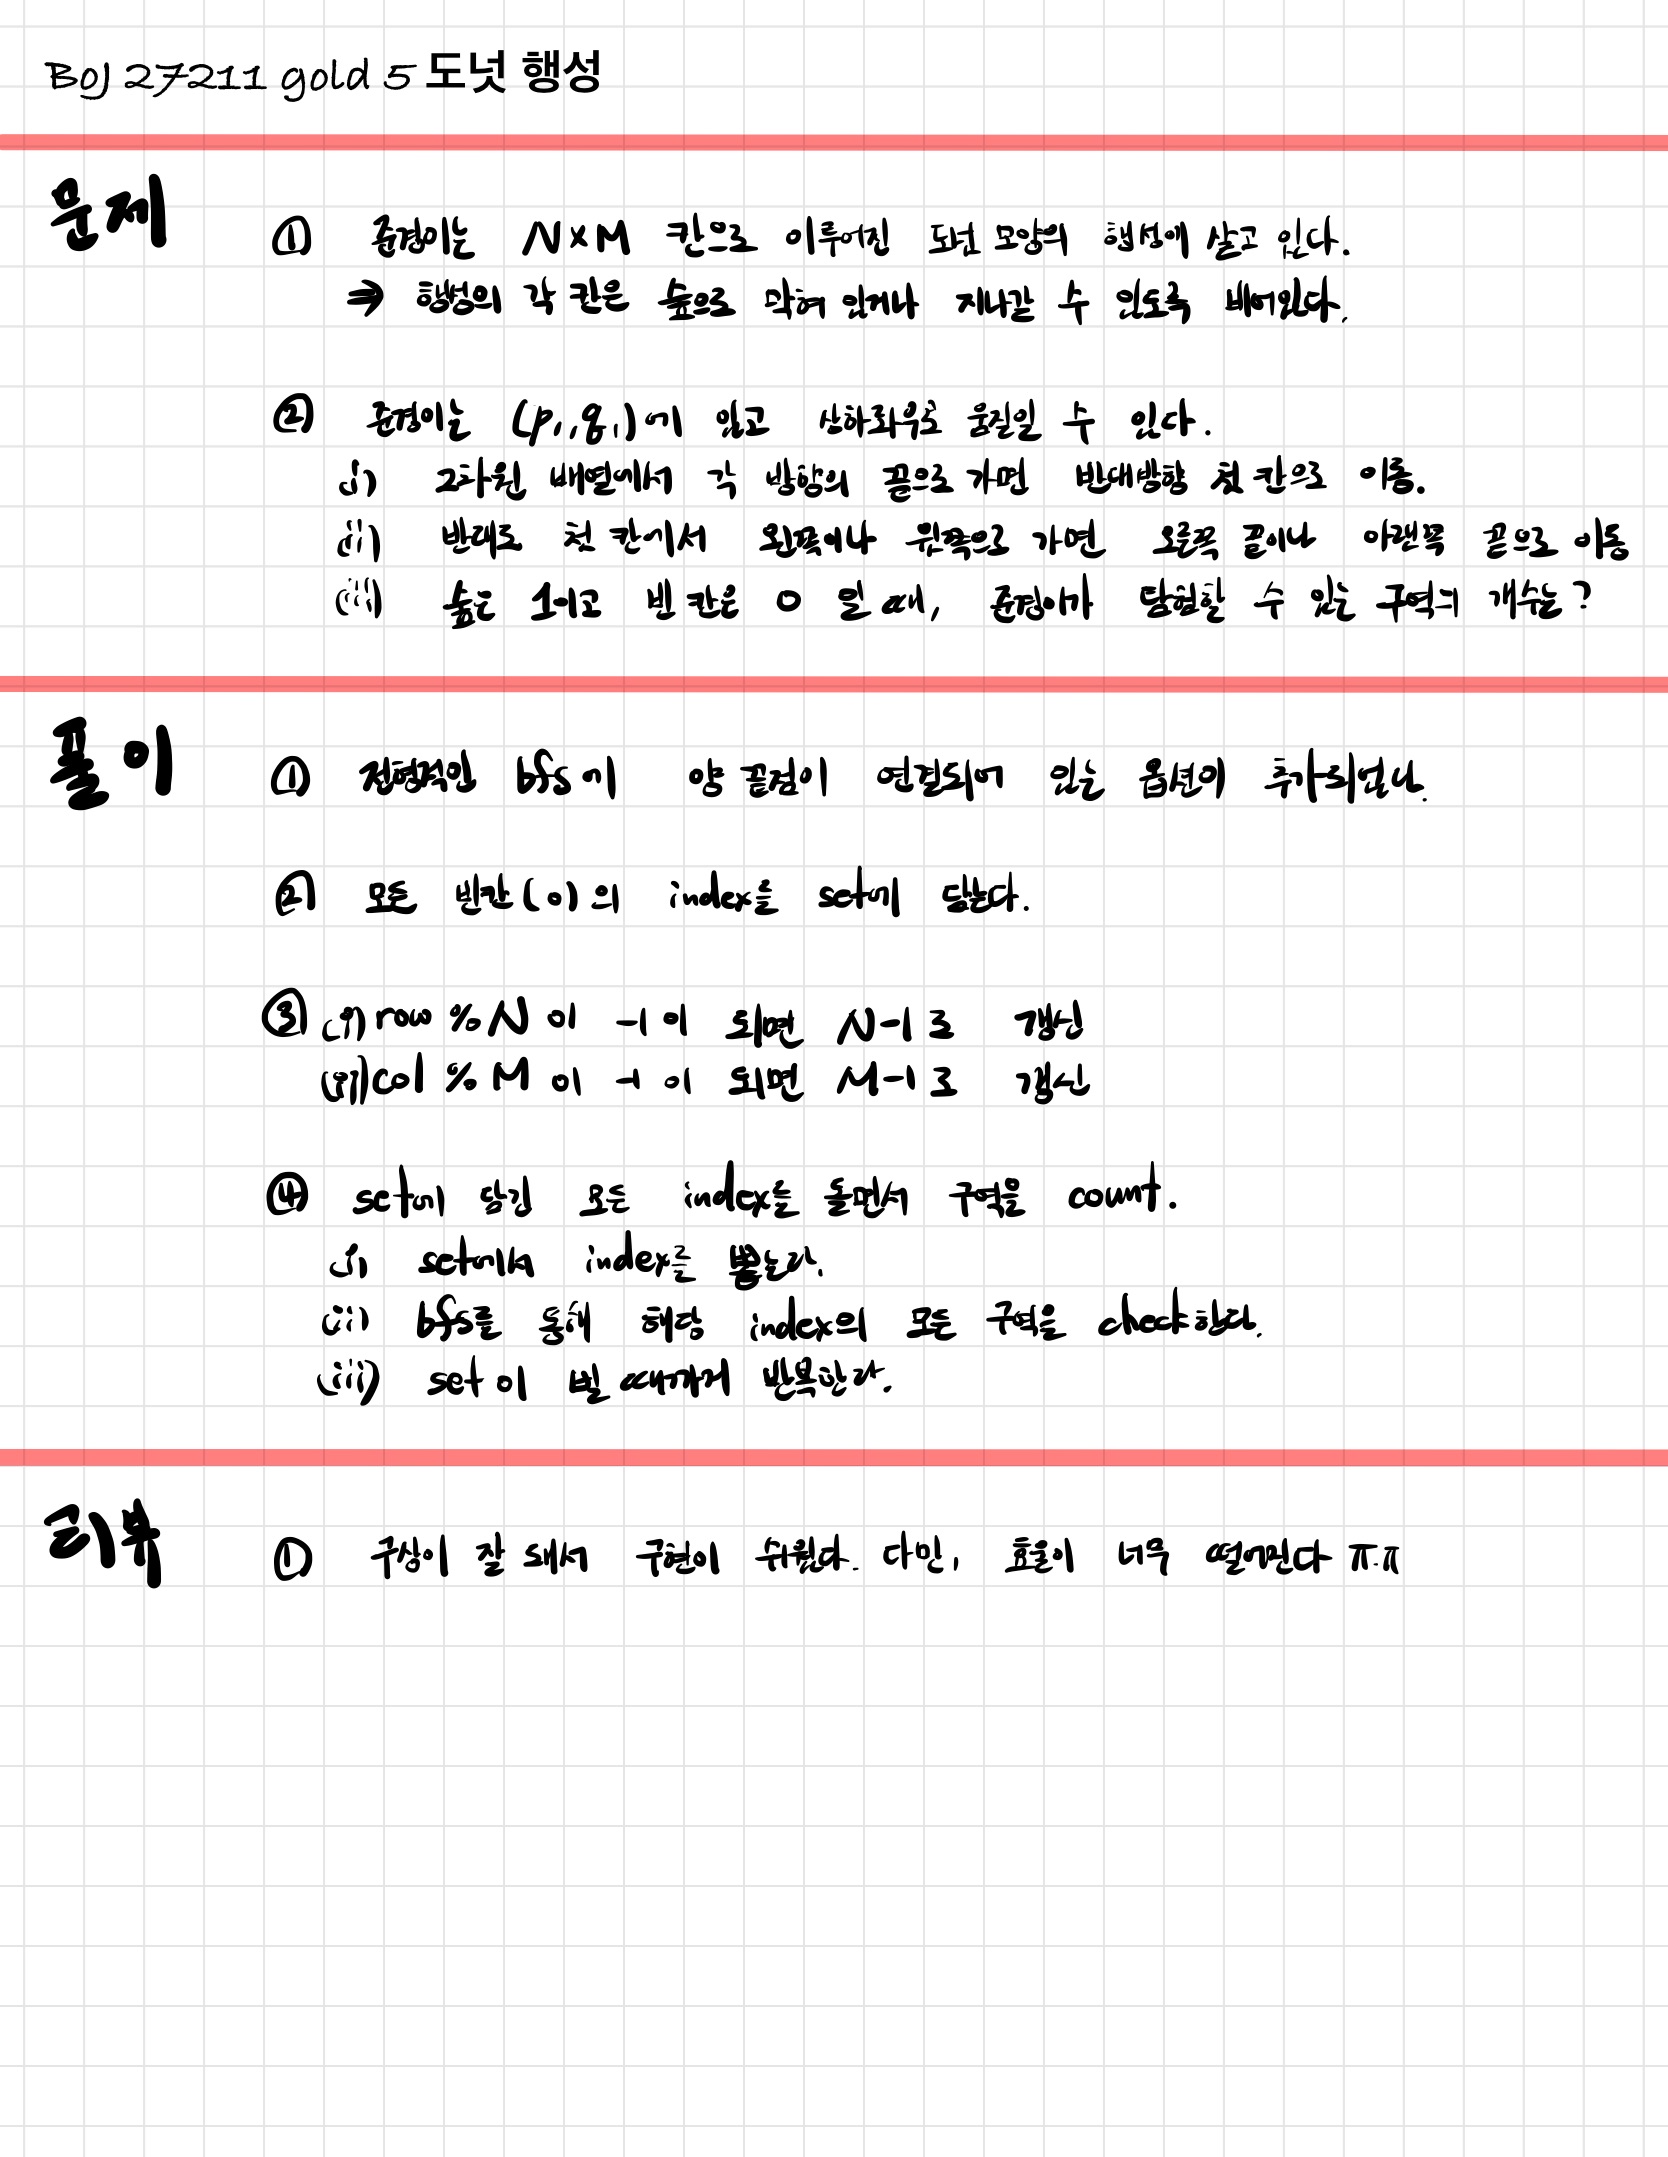 BOJ 27211 gold 5 도넛 행성
문제
① 준겸이는 N×M 칸으로 이루어진 도넛 모양의 행성에 살고 있다.
⇒ 행성의 각 칸은 숲으로 막혀 있거나 지나갈 수 있도록 비어있다.
② 준겸이는 (p₁,q₁)에 있고 상하좌우로 움직일 수 있다.
(i) 2차원 배열에서 각 방향의 끝으로 가면 반대방향 첫 칸으로 이동.
(ii) 반대로 첫 칸에서 왼쪽이나 윗쪽으로 가면 오른쪽 끝이나 아랫쪽 끝으로 이동
(iii) 숲은 1이고 빈 칸은 0 일 때, 준겸이가 탐험할 수 있는 구역의 개수는?
풀이
① 전형적인 bfs에 양 끝점이 연결되어 있는 옵션이 추가되었다.
② 모든 빈칸(0)의 index를 set에 담는다.
③ (i) row % N 이 -1 이 되면 N-1로 갱신
(ii) col % M 이 -1 이 되면 M-1로 갱신
④ set에 담긴 모든 index를 돌면서 구역을 count.
(i) set에서 index를 뽑는다.
(ii) bfs를 통해 해당 index의 모든 구역을 check한다.
(iii) set이 빌 때까지 반복한다.
리뷰
① 구상이 잘 돼서 구현이 쉬웠다. 다만, 효율이 너무 떨어진다 ㅠ.ㅠ